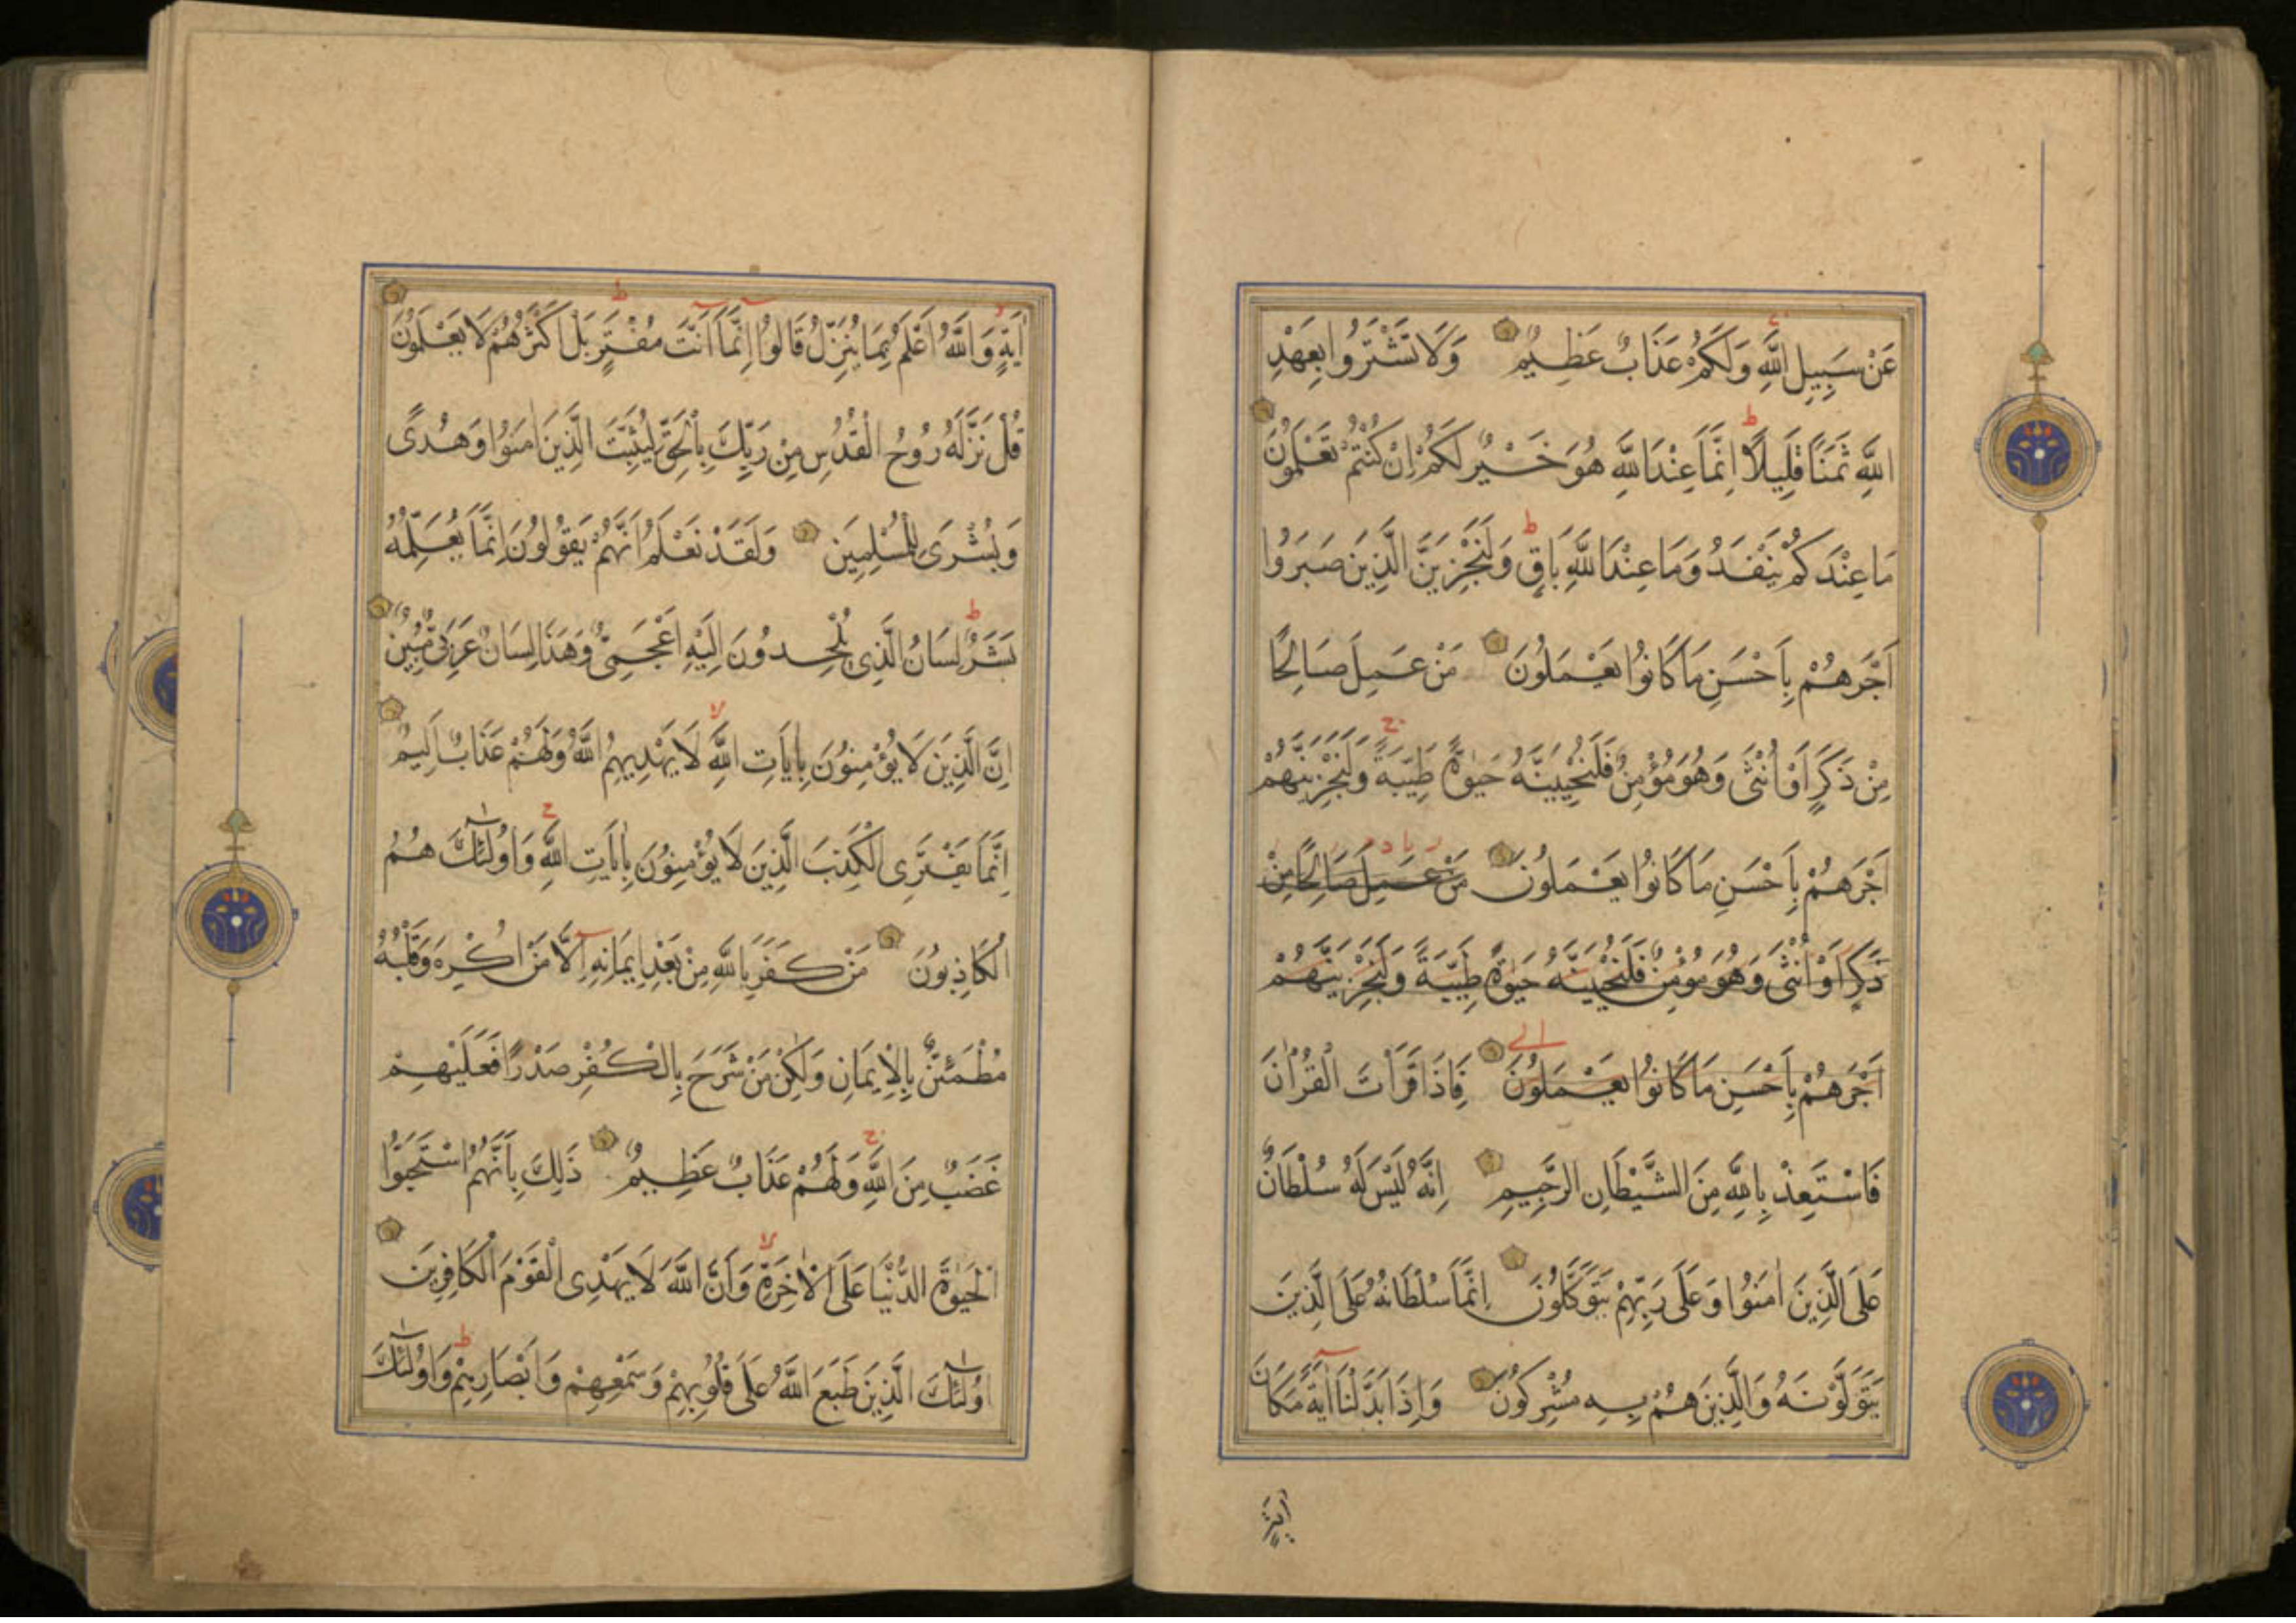 عَنْ سَبِيلِ اللَّهِ وَلَكُمْ عَذَابٌ عَظِيمٌ وَلَا تَشْتَرُوا بِعَهْدِ
اللَّهِ ثَمَنًا قَلِيلًا ط اِنَّمَا عِنْدَ اللَّهِ هُوَ خَيْرٌ لَكُمْ اِنْ كُنْتُمْ تَعْلَمُونَ
مَا عِنْدَكُمْ يَنْفَدُ وَمَا عِنْدَ اللَّهِ بَاقٍ ط وَلَنَجْزِيَنَّ الَّذِينَ صَبَرُوا
اَجْرَهُمْ بِاَحْسَنِ مَا كَانُوا يَعْمَلُونَ مَنْ عَمِلَ صَالِحًا
مِنْ ذَكَرٍ اَوْ اُنْثَى وَهُوَ مُؤْمِنٌ فَلَنُحْيِيَنَّهُ حَيٰوةً طَيِّبَةً ج وَلَنَجْزِيَنَّهُمْ
اَجْرَهُمْ بِاَحْسَنِ مَا كَانُوا يَعْمَلُونَ مَنْ عَمِلَ صَالِحًا مِنْ
ذَكَرٍ اَوْ اُنْثَى وَهُوَ مُؤْمِنٌ فَلَنُحْيِيَنَّهُ حَيٰوةً طَيِّبَةً وَلَنَجْزِيَنَّهُمْ
اَجْرَهُمْ بِاَحْسَنِ مَا كَانُوا يَعْمَلُونَ فَاِذَا قَرَأْتَ الْقُرْاٰنَ
فَاسْتَعِذْ بِاللَّهِ مِنَ الشَّيْطَانِ الرَّجِيمِ اِنَّهُ لَيْسَ لَهُ سُلْطَانٌ
عَلَى الَّذِينَ اٰمَنُوا وَعَلَى رَبِّهِمْ يَتَوَكَّلُونَ اِنَّمَا سُلْطَانُهُ عَلَى الَّذِينَ
يَتَوَلَّوْنَهُ وَالَّذِينَ هُمْ بِهِ مُشْرِكُونَ وَاِذَا بَدَّلْنَا اٰيَةً مَكَانَ
اٰيَةٍ
اٰيَةٍ وَاللَّهُ اَعْلَمُ بِمَا يُنَزِّلُ قَالُوا اِنَّمَا اَنْتَ مُفْتَرٍ ط بَلْ اَكْثَرُهُمْ لَا يَعْلَمُونَ
قُلْ نَزَّلَهُ رُوحُ الْقُدُسِ مِنْ رَبِّكَ بِالْحَقِّ لِيُثَبِّتَ الَّذِينَ اٰمَنُوا وَهُدًى
وَبُشْرَى لِلْمُسْلِمِينَ وَلَقَدْ نَعْلَمُ اَنَّهُمْ يَقُولُونَ اِنَّمَا يُعَلِّمُهُ
بَشَرٌ ط لِسَانُ الَّذِي يُلْحِدُونَ اِلَيْهِ اَعْجَمِيٌّ وَهَذَا لِسَانٌ عَرَبِيٌّ مُبِينٌ
اِنَّ الَّذِينَ لَا يُؤْمِنُونَ بِاٰيَاتِ اللَّهِ لا لَا يَهْدِيهِمُ اللَّهُ وَلَهُمْ عَذَابٌ اَلِيمٌ
اِنَّمَا يَفْتَرِى الْكَذِبَ الَّذِينَ لَا يُؤْمِنُونَ بِاٰيَاتِ اللَّهِ ج وَاُولٰئِكَ هُمُ
الْكَاذِبُونَ مَنْ كَفَرَ بِاللَّهِ مِنْ بَعْدِ اِيمَانِهِ اِلَّا مَنْ اُكْرِهَ وَقَلْبُهُ
مُطْمَئِنٌّ بِالْاِيمَانِ وَلٰكِنْ مَنْ شَرَحَ بِالْكُفْرِ صَدْرًا فَعَلَيْهِمْ
غَضَبٌ مِنَ اللَّهِ ج وَلَهُمْ عَذَابٌ عَظِيمٌ ذَلِكَ بِاَنَّهُمُ اسْتَحَبُّوا
الْحَيٰوةَ الدُّنْيَا عَلَى الْاٰخِرَةِ لا وَاَنَّ اللَّهَ لَا يَهْدِى الْقَوْمَ الْكَافِرِينَ
اُولٰئِكَ الَّذِينَ طَبَعَ اللَّهُ عَلَى قُلُوبِهِمْ وَسَمْعِهِمْ وَاَبْصَارِهِمْ ط وَاُولٰئِكَ